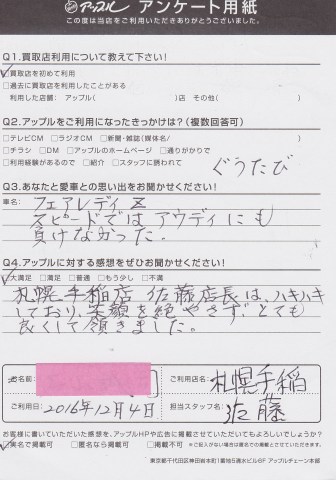 アップル アンケート用紙
この度は当店をご利用いただきありがとうございました。
Q1.買取店利用について教えて下さい!
□買取店を初めて利用
□過去に買取店を利用したことがある
利用した店舗: アップル( )店 その他( )
Q2.アップルをご利用になったきっかけは?(複数回答可)
□テレビCM □ラジオCM □新聞・雑誌(媒体名/ )
□チラシ □DM □アップルのホームページ □通りがかりで
□利用経験があるので □紹介 □スタッフに誘われて
ぐうたび
Q3.あなたと愛車との思い出をお聞かせください!
車名: フェアレディZ
スピードではアウディにも
負けなかった。
Q4.アップルに対する感想をぜひお聞かせください!
□大満足 □満足 □普通 □もう少し □不満
札幌手稲店 佐藤店長は、ハキハキ
しており、笑顔を絶やさず、とても
良くして頂きました。
お名前:
ご利用店名: 札幌手稲
ご利用日: 2016年12月4日
担当スタッフ名: 佐藤
お客様に書いていただいた感想を、アップルHPや広告に掲載させていただいてもよろしいでしょうか?
□実名で掲載可 □匿名なら掲載可 □掲載不可
東京都千代田区神田岩本町1番地5清水ビル6F アップルチェーン本部